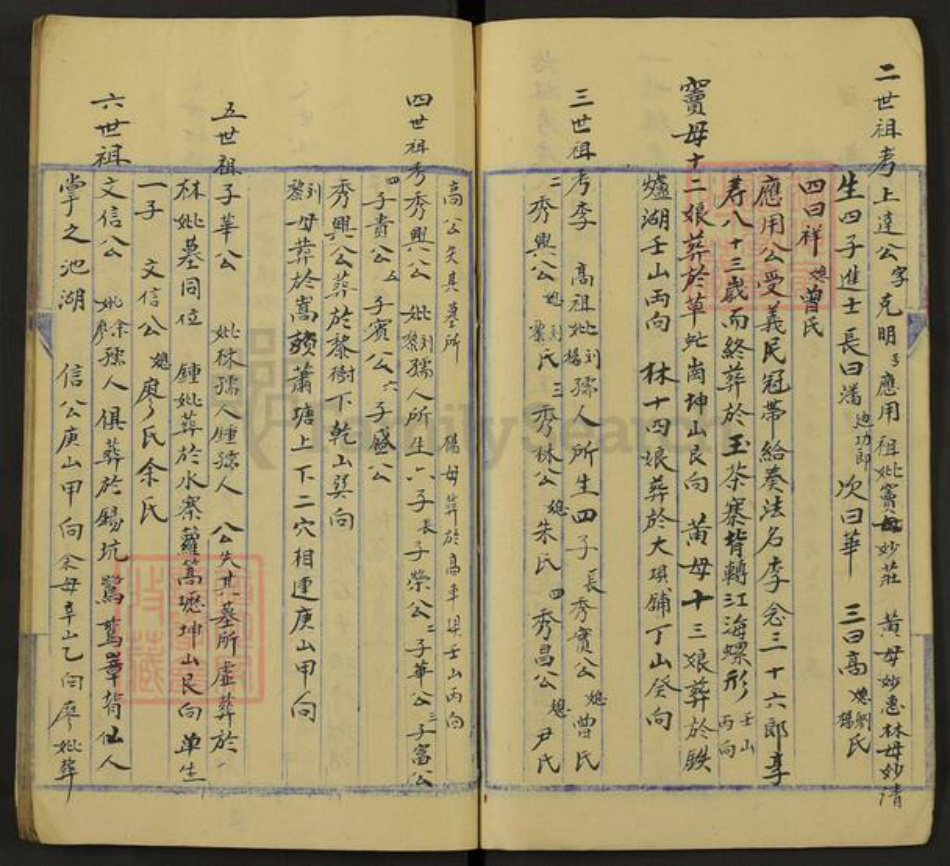 二世祖考上達公字克明号應用祖妣竇母妙莊 黃母妙惠林母妙清
生四子進士長曰潘迪功郎 次曰華 三曰高媳劉楊氏
四曰祥媳曾氏
應用公受義民冠帶給奏法名李念三十六郎享
寿八十三歲而終葬於玉茶寨背轉江海螺形壬山丙向
竇母十二娘葬於草虻崗坤山艮向 黃母十三娘葬於鉄
爐湖壬山丙向 林十四娘葬於大垻舖丁山癸向
三世祖考李 高祖妣刘楊孺人所生四子長秀實公媳曾氏
二秀興公媳刘黎氏三秀林公媳朱氏 四秀昌公媳尹氏
高公失其墓所 楊母葬於高車垻壬山丙向
四世祖考秀興公 妣刘黎孺人所生六子長子榮公二子華公三子富公
四子貴公五子賓公六子盛公
秀興公葬於黎樹下乾山巽向
刘黎母葬於嵩蕭塘上下二穴相連庚山甲向
五世祖子華公 妣林孺人鍾孺人 公失其墓所虛葬於
林妣墓同位 鍾妣葬於水寨蘿篙壢坤山艮向 单生
一子 文信公媳廖氏余氏
六世祖文信公 妣余廖孺人俱葬於錫坑鷺鶿輋背仙人
掌之池湖 信公庚山甲向余母辛山乙向廖妣葬
FamilySearch